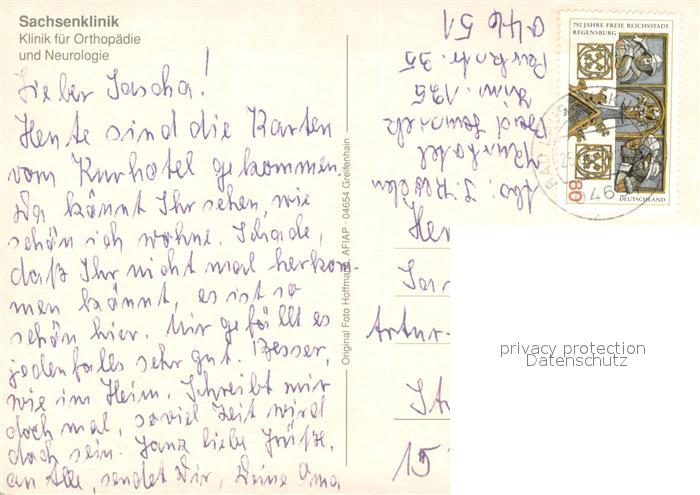 Sachsenklinik
Klinik für Orthopädie
und Neurologie
Lieber Sascha!
Heute sind die Karten
vom Kurhotel gekommen.
Da könnt Ihr sehen, wie
schön ich wohne. Schade,
daß Ihr nicht mal herkom-
men könnt, es ist so
schön hier. Mir gefällt es
jedenfalls sehr gut. Besser,
wie im Heim. Schreibt mir
doch mal, soviel Zeit wird
doch sein. Ganz liebe Grüße,
an Alle, sendet Dir, Deine Oma
Original Foto Hoffmann, AFIAP · 04654 Greifenhain
Abs:
Kurhotel
Bad Lausick
Zim. 195
Parkstr. 35
04651
750 JAHRE FREIE REICHSSTADT
REGENSBURG
80
DEUTSCHLAND
46
Her
Sas
Artur-
Str
15
privacy protection
Datenschutz